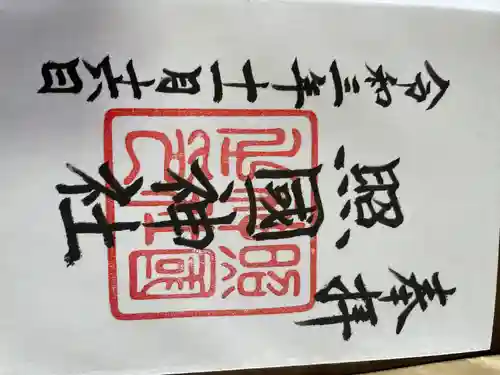 奉拝
照國神社
令和三年十一月十六日
照國
神社
之印